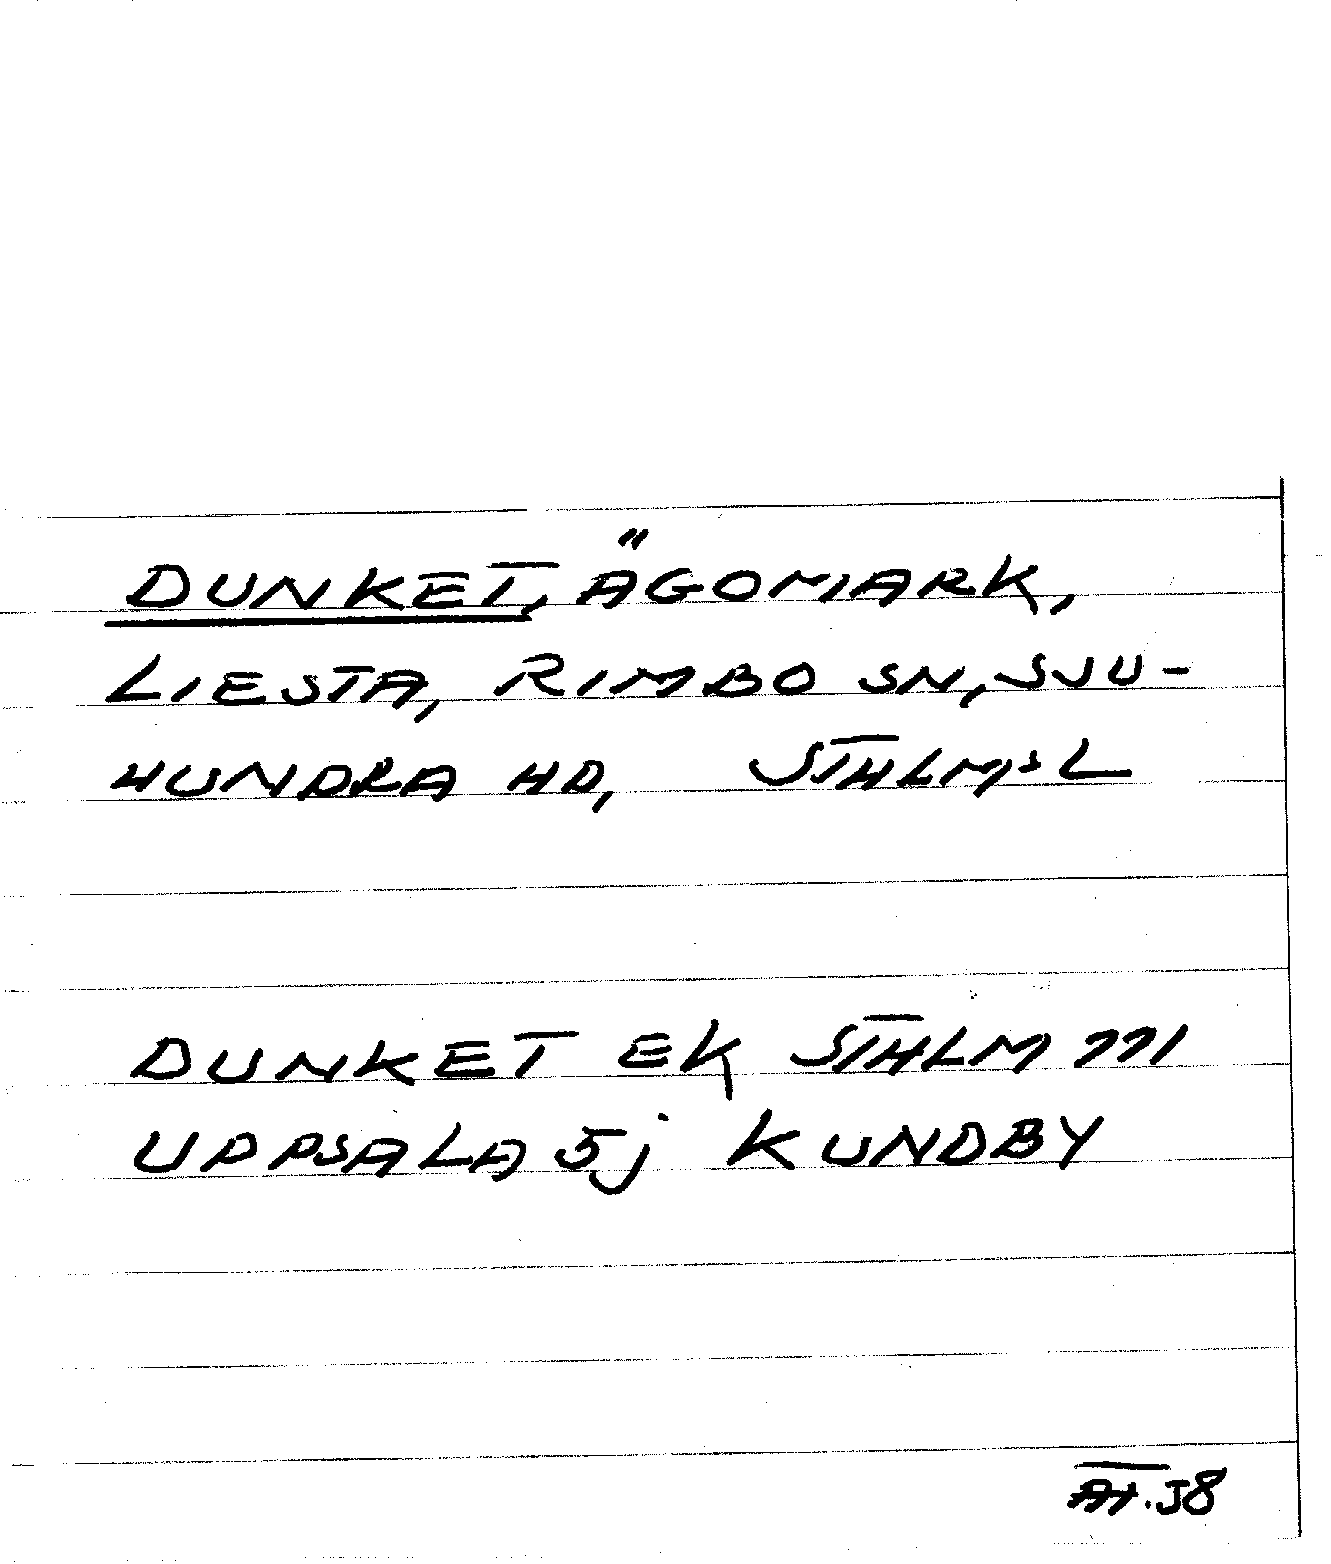 DUNKET, ÄGOMARK,
LIESTA, RIMBO SN, SJU-
HUNDRA HD, STHLMS L
DUNKET EK STHLM 771
UPPSALA 5j KUNDBY